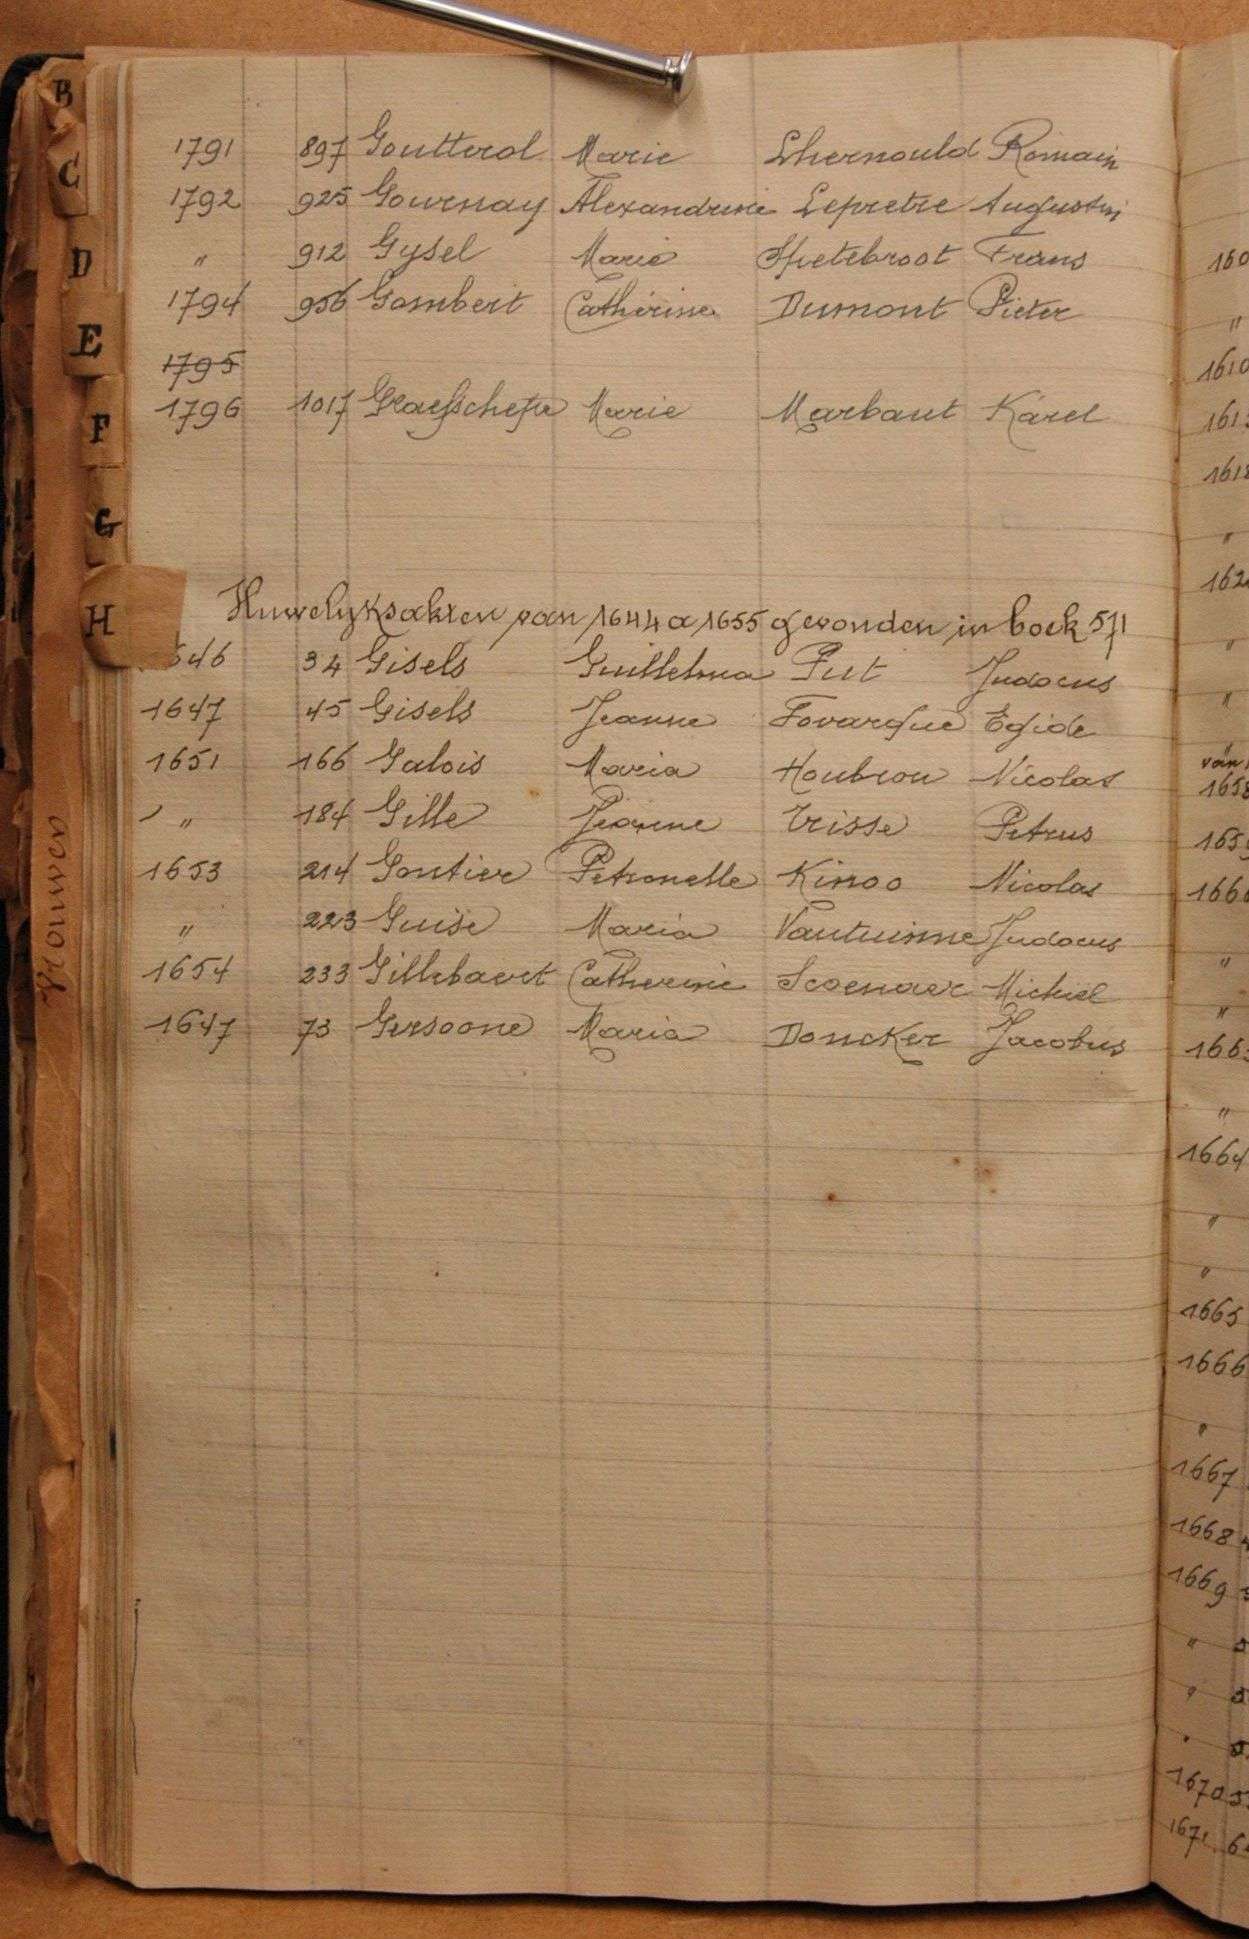 B
C
D
E
F
G
H
Vrouwen
1791 897 Goutterol Marie Lhernould Romain
1792 925 Gournay Alexandrine Lepretre Augustin
" 912 Gysel Marie Spetebroot Frans
1794 956 Gombert Catherine Dumont Pieter
1795
1796 1017 Graefschepe Marie Marbaut Karel
Huwelyksakten van 1644 a 1655 gevonden in boek 571
1646 34 Gisels Guillelma Put Judocus
1647 45 Gisels Jeanne Fovarque Egide
1651 166 Galois Maria Houbron Nicolas
" 184 Gille Jeanne Trisse Petrus
1653 214 Gontier Petronelle Kinoo Nicolas
" 223 Guise Maria Vantuinne Judocus
1654 233 Gillebaert Catherine Scoenaer Michiel
1647 73 Gersoone Maria Doncker Jacobus
160
"
1610
161
1618
"
162
"
"
van
1658
1659
1660
"
"
166
"
1664
"
"
1665
1666
"
1667
1668
1669
"
"
"
1670
1671 6